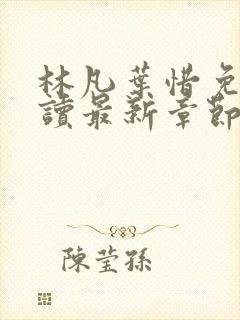 林凡葉惜免
讀最新章節
陳瑩孫